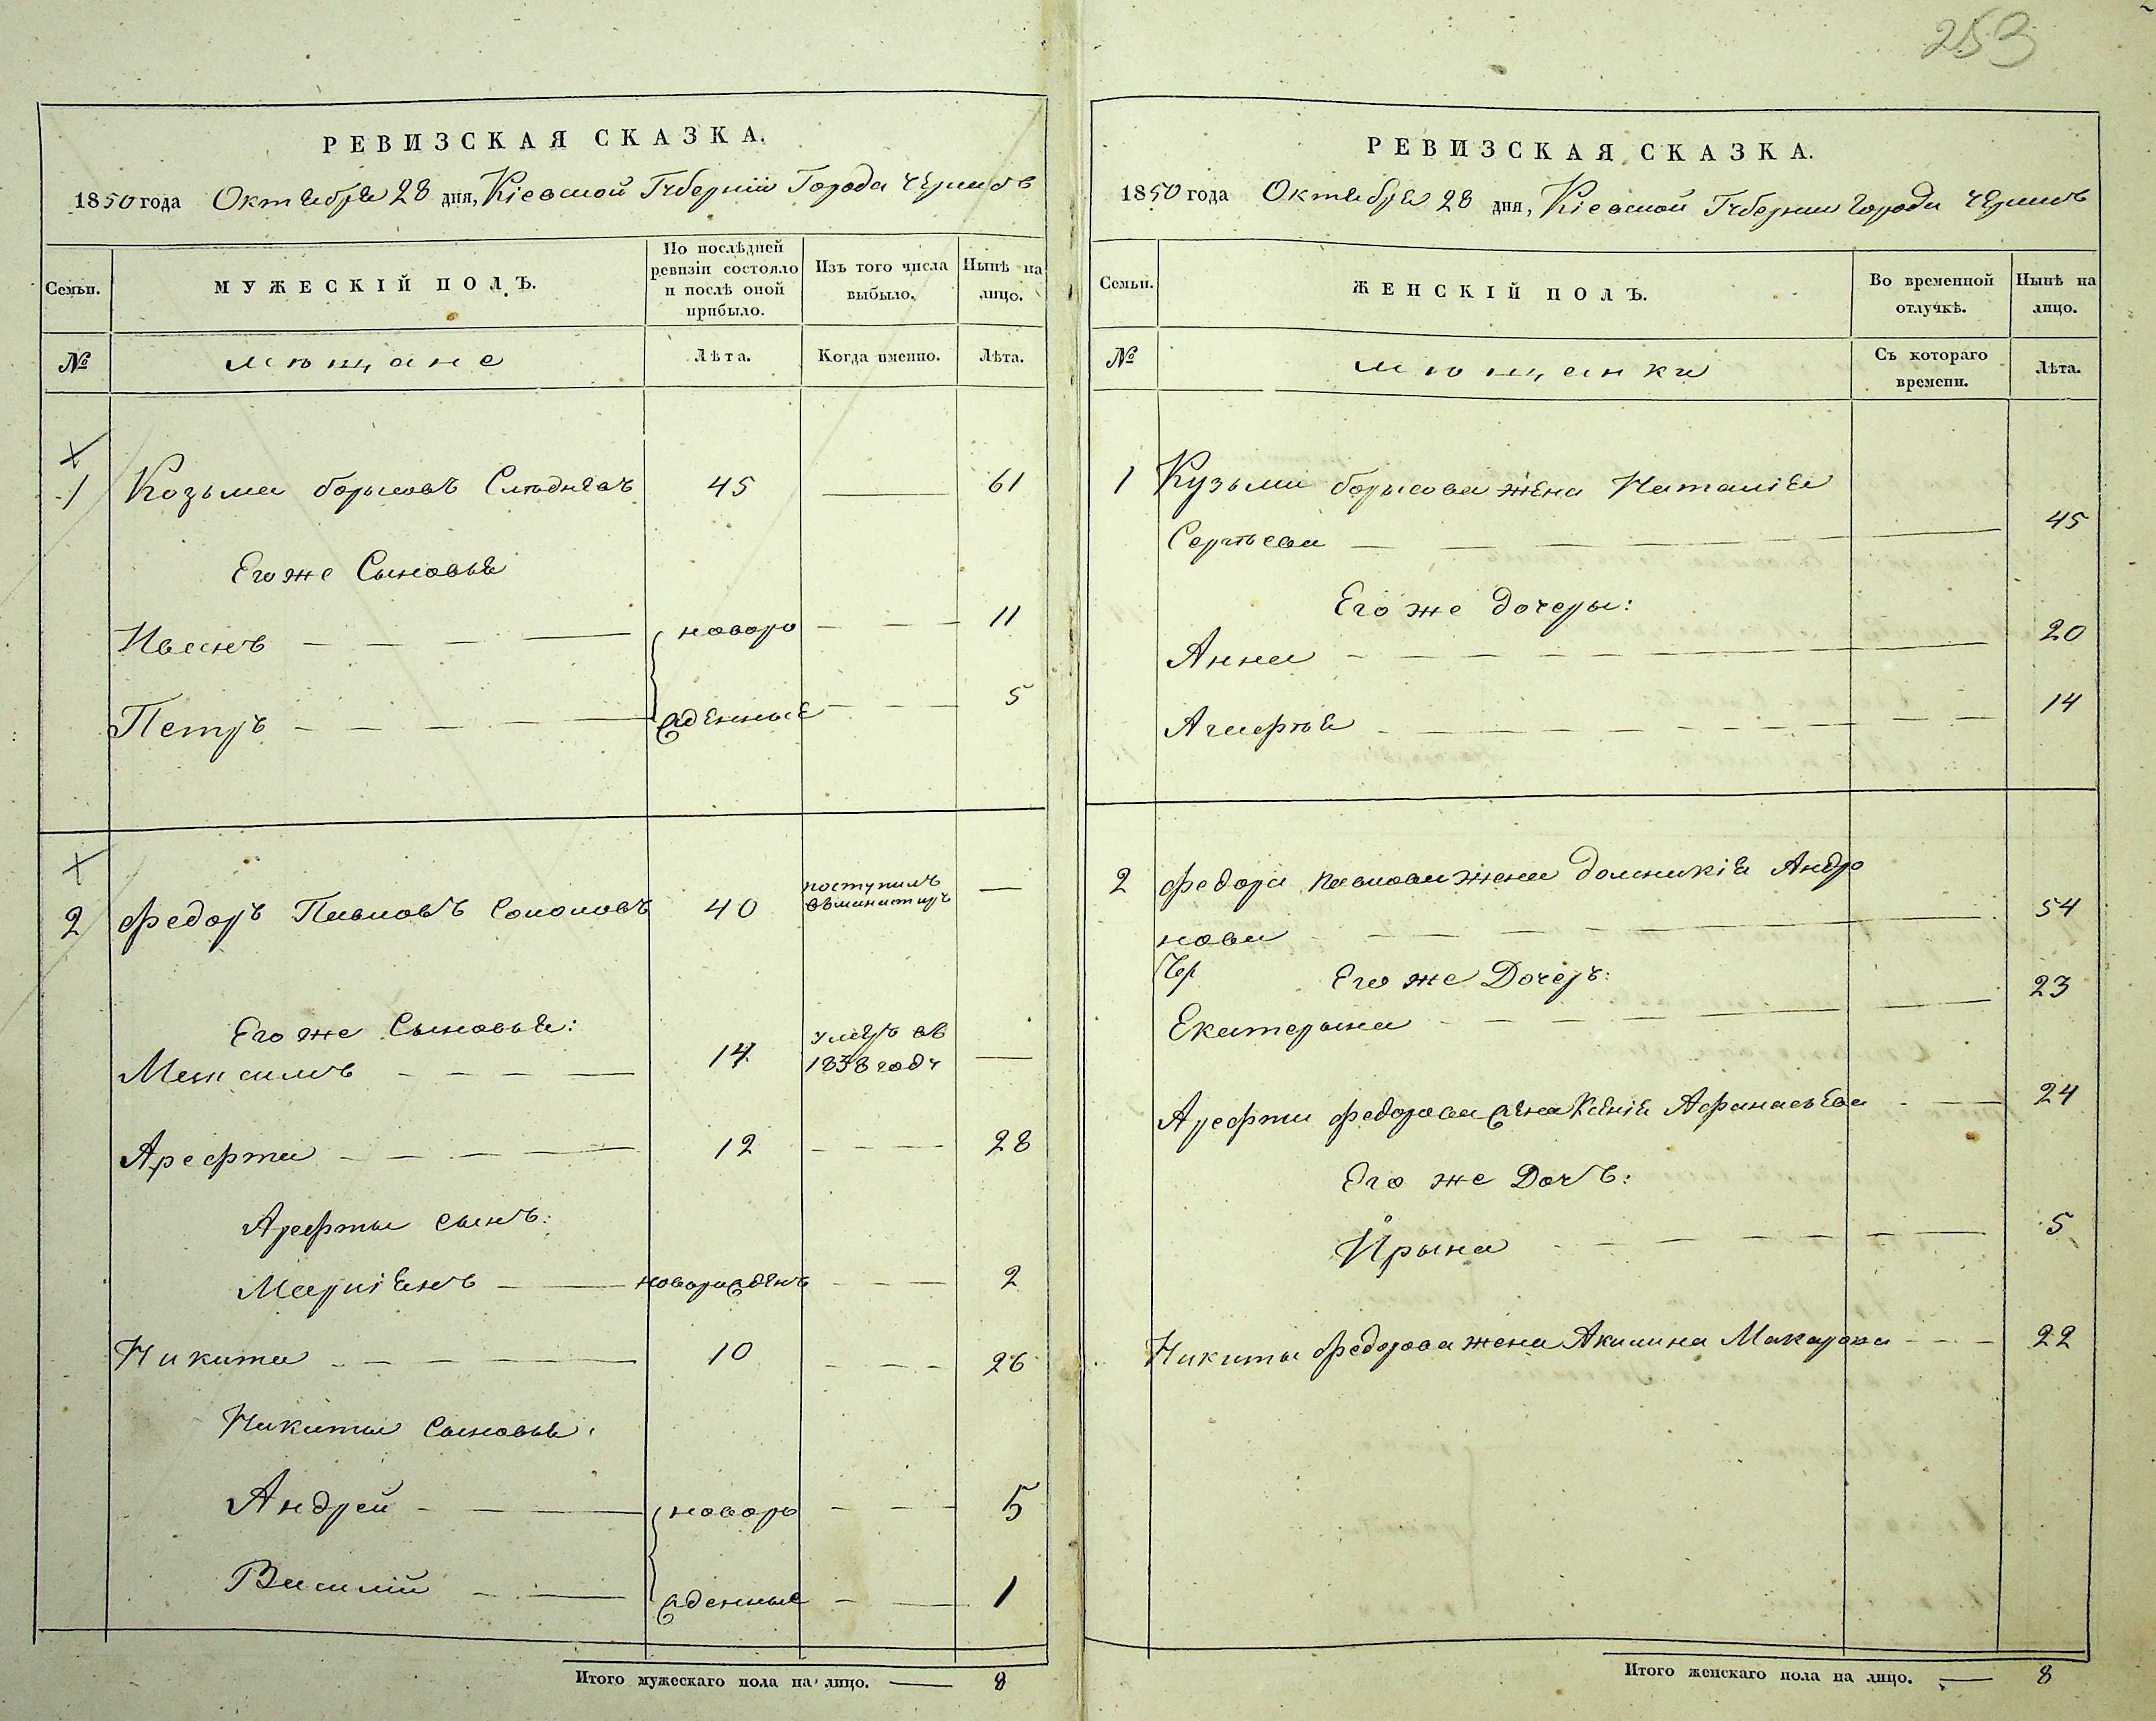 253
РЕВИЗСКАЯ СКАЗКА.
1850 года Октября 28 дня, Кіевской Губерніи Города
Семьи.
МУЖЕСКІЙ ПОЛЪ.
По послѣдней ревизіи состояло и послѣ оной прибыло.
Изъ того числа выбыло.
Нынѣ на лицо.
№
мѣщане
Лѣта.
Когда именно.
Лѣта.
1 Козьма борысовъ 45 — 61
Его же Сыновья
Иванъ — — — — новоро — — — 11
Петръ — — — — жденные — — — 5
2 Федоръ Павловъ 40 поступилъ —
Его же Сыновья:
14 умеръ въ 1838 году —
Арефта — — — — 12 — — — 28
Арефты сынъ:
новорожденъ — — — 2
Никита — — — — 10 — — — 26
Никиты Сыновья:
Андрей — — — новоро — — — 5
Василій — — — жденные — — 1
Итого мужескаго пола на лицо. — 8
РЕВИЗСКАЯ СКАЗКА.
1850 года Октября 28 дня, Кіевской Губерніи Города
Семьи.
ЖЕНСКІЙ ПОЛЪ.
Во временной отлучкѣ.
Нынѣ на лицо.
№
мѣщанки
Съ котораго времени.
Лѣта.
1 Кузьмы борысова жена Наталія
— — — — 45
Его же дочеры:
Анна — — — — 20
Агафія — — — — 14
2 Федора Павлова жена Домникія Андро
нова — — — — 54
Его же Дочеръ:
Екатерына — — — — 23
Арефты Федорова жена Ксенія Афанасьева — — 24
Его же Дочъ:
Ирына — — — — 5
Никиты Федорова жена Акилина Макарова — — — 22
Итого женскаго пола на лицо. — 8